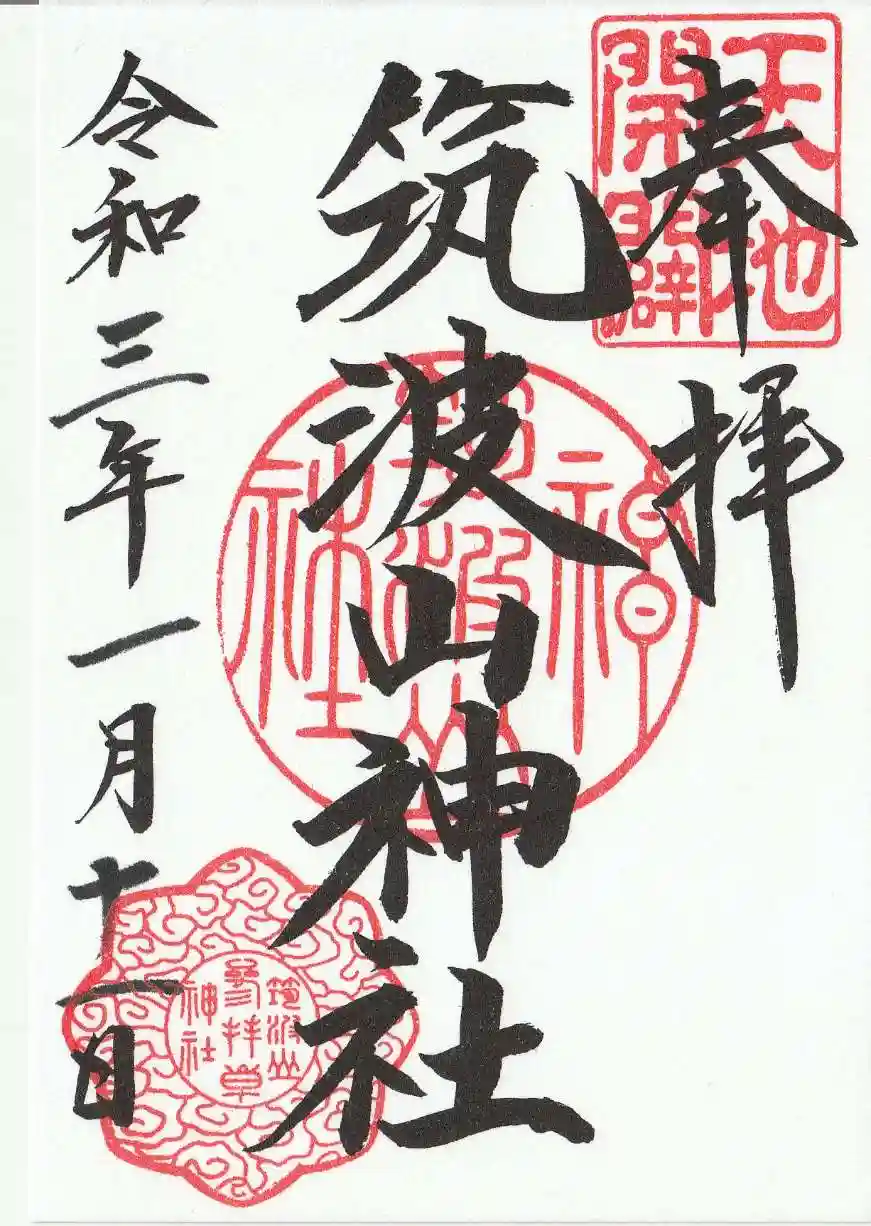 奉拝
天地
開闢
筑波山神社
筑波山
神社
令和三年一月十一日
筑波山
参拝章
神社